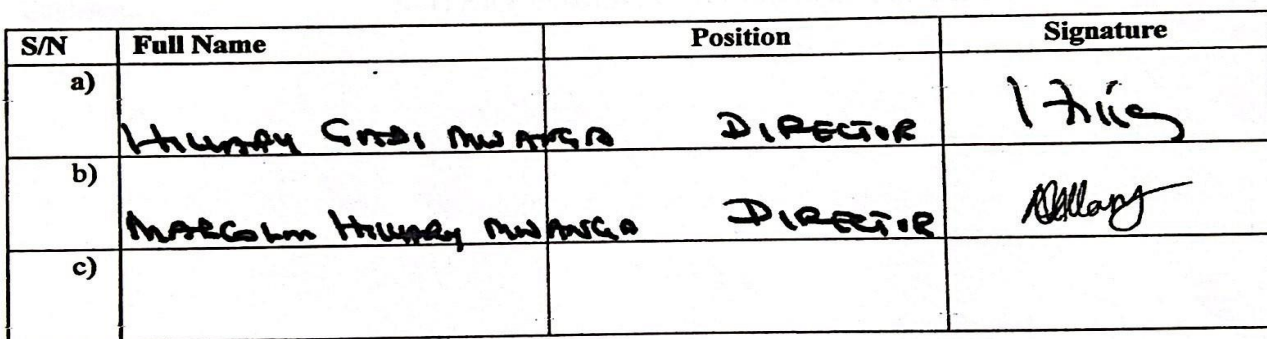 S/N Full Name Position Signature
a)
HILLARY GADI MWANGA DIRECTOR
b)
MARCOLM HILLARY MWANGA DIRECTOR
c)